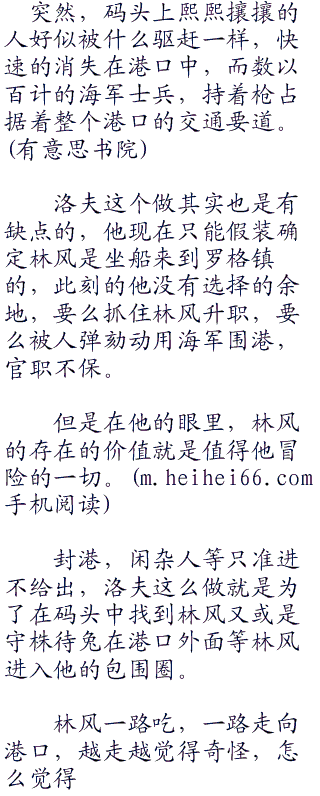 突然，码头上熙熙攘攘的
人好似被什么驱赶一样，快
速的消失在港口中，而数以
百计的海军士兵，持着枪占
据着整个港口的交通要道。
(有意思书院)
洛夫这个做其实也是有
缺点的，他现在只能假装确
定林风是坐船来到罗格镇
的，此刻的他没有选择的余
地，要么抓住林风升职，要
么被人弹劾动用海军围港，
官职不保。
但是在他的眼里，林风
的存在的价值就是值得他冒
险的一切。(m.heihei66.com
手机阅读)
封港，闲杂人等只准进
不给出，洛夫这么做就是为
了在码头中找到林风又或是
守株待兔在港口外面等林风
进入他的包围圈。
林风一路吃，一路走向
港口，越走越觉得奇怪，怎
么觉得